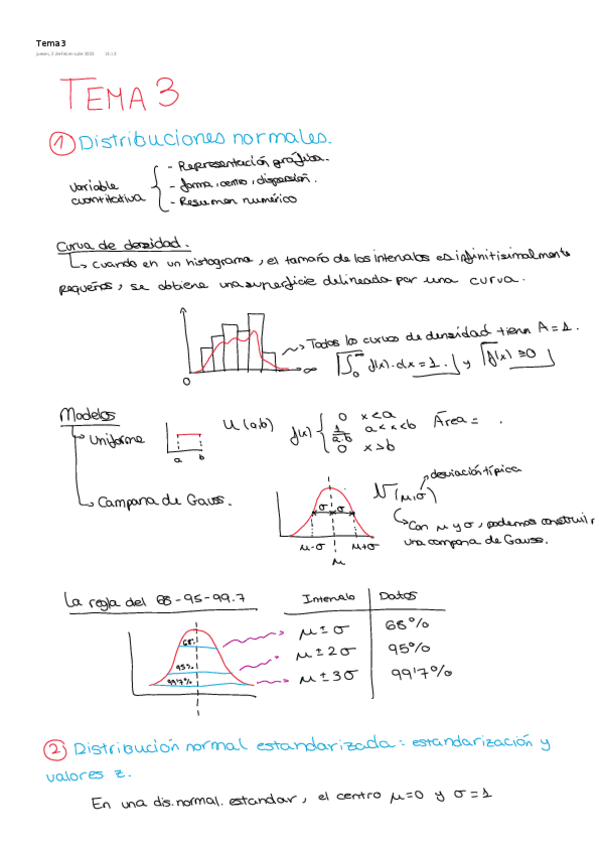 Tema 3
TEMA 3
① Distribuciones normales.
variable cuantitativa
- Representación gráfica.
- forma, centro, dispersión.
- Resumen numérico
Curva de densidad.
↳ cuando en un histograma, el tamaño de los intervalos es infinitisimalmente
pequeños, se obtiene una superficie delineada por una curva.
Todas las curvas de densidad tienen A = 1.
∫₀^∞ f(x)·dx = 1. y f(x) ≥ 0
0 ∞
Modelos
Uniforme
a b
U (a,b)
f(x) { 0 x < a
1/a.b a < x < b
0 x > b
Área = .
Campana de Gauss.
σ σ
μ-σ μ+σ
μ
desviación típica
N (μ,σ)
Con μ y σ, podemos construir
una campana de Gauss.
La regla del 68-95-99.7
68%
95%
99'7%
Intervalo Datos
μ ± σ 68%
μ ± 2σ 95%
μ ± 3σ 99'7%
② Distribución normal estandarizada: estandarización y
valores z.
En una dis. normal. estandar, el centro μ=0 y σ=1